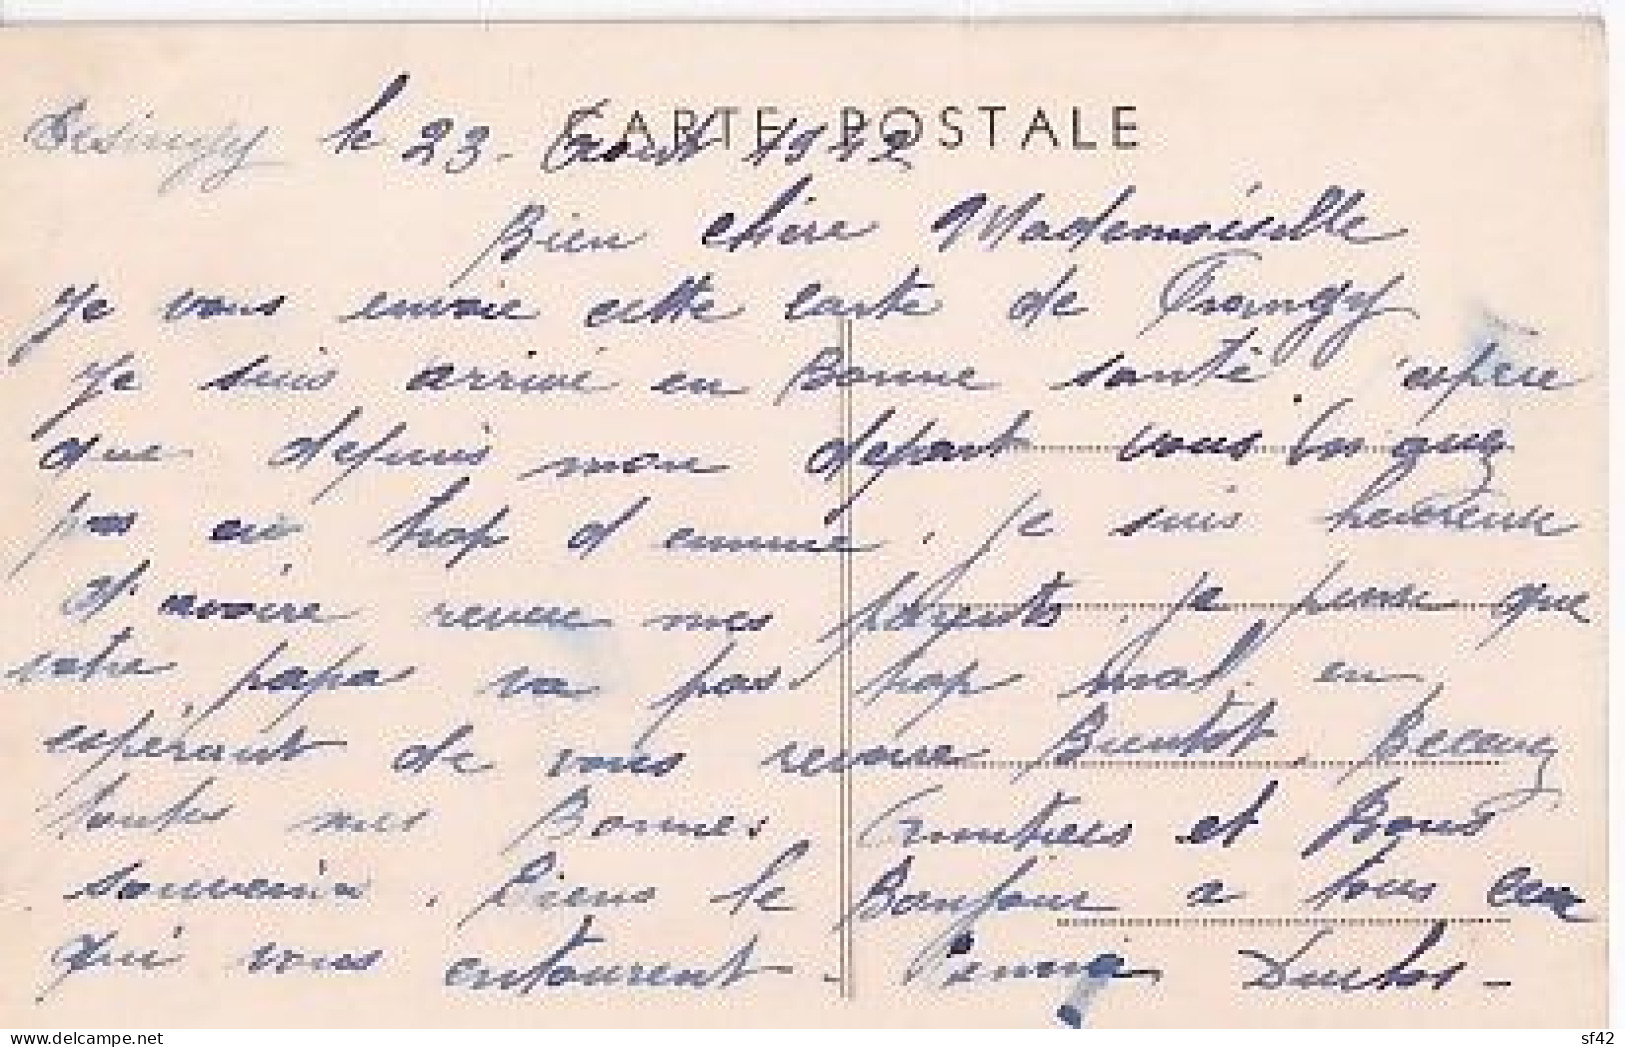 le 23 Aout 1942
CARTE POSTALE
Bien chère Mademoiselle
Je vous envoie cette carte de Frangy
Je suis arrivé en Bonne santé. espère
que depuis mon départ vous
pas eu trop d'ennuie. Je suis heureuse
d'avoire revue mes parents. Je pense que
votre papa va pas trop mal. en
espérant de vous revoire Bientot. Recevez
toutes mes Bonnes Amitiees et Bons
souvenirs. Biens le Bonjour a tous ceux
qui vous entourent - Duclos -
delcampe.net
sf42